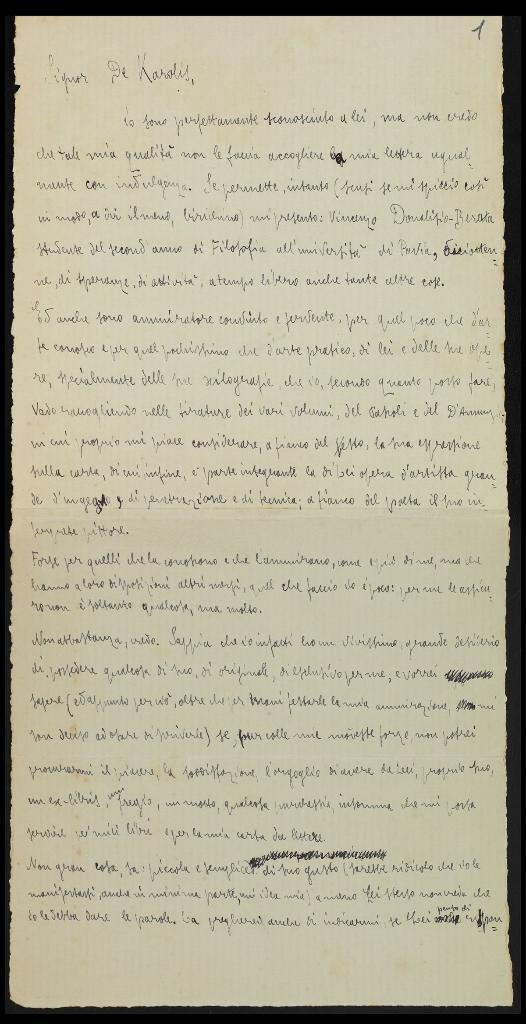 1
Signor De Karolis,
io sono perfettamente sconosciuto a lei, ma non credo
che tale mia qualità non le faccia accogliere la mia lettera ugual-
mente con indulgenza. Se permette, intanto (scusi se mi spiccio così
in modo, a dir il meno, ) mi presento: Vincenzo Donalisio-Beratta
studente del second'anno di Filosofia all'università di Pavia, diciotten-
ne, di speranze, di attività, a tempo libero anche tante altre cose.
Ed anche sono ammiratore convinto e fervente, per quel poco che d'ar-
te conosco e per quel pochissimo che d'arte pratico, di lei e delle sue ope-
re, specialmente delle sue xilografie, che io, secondo quanto posso fare,
vado raccogliendo nelle tirature dei vari volumi, del Pascoli e del D'Annunzio,
in cui proprio mi piace considerare, a fianco del testo, la sua espressione
sulla carta, di cui infine, è parte integrante la di Lei opera d'artista gran-
de d'ingegno, di penetrazione e di tecnica, a fianco del poeta il suo in-
terprete pittore.
Forse per quelli che la conoscono e che l'ammirano, come e più di me, ma che
hanno a loro disposizioni altri mezzi, quel che faccio io è poco: per me le assicu-
ro non è soltanto qualcosa, ma molto.
Non abbastanza, credo. Sappia che io infatti ho un vivissimo, grande desiderio
di possedere qualcosa di suo, di originale, di esclusivo per me, e vorrei
sapere (ed appunto per ciò, oltre che per manifestarle la mia ammirazione, mi
son deciso ad osare di scriverle) se, pur colle mie modeste forze, non potrei
procurarmi il piacere, la soddisfazione, l'orgoglio di avere da Lei, proprio suo,
un ex-libris, un fregio, un motto, qualcosa purchessia, insomma che mi possa
servire pei miei libri e per la mia carta da lettere.
Non gran cosa, sa: piccola e semplice: di suo gusto (sarebbe ridicolo che io le
manifestassi, anche in minima parte, un'idea mia) a meno Lei stesso non creda che
io le debba dare le parole. La pregherei anche di indicarmi, se Lei pensa di rispon-